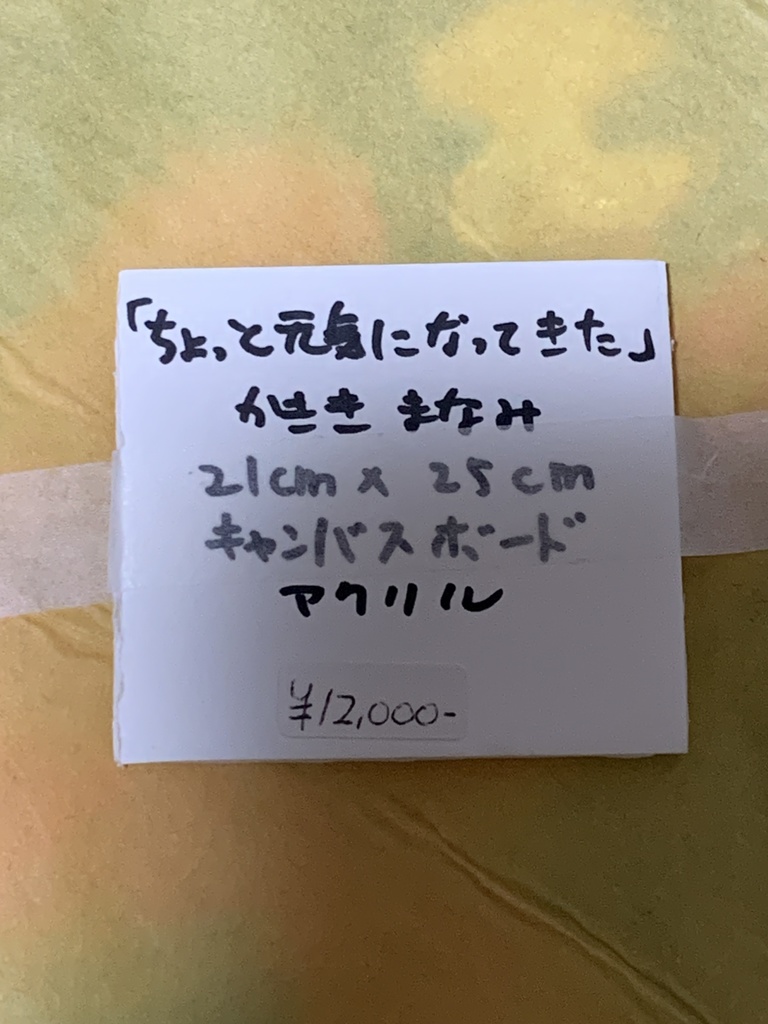 「ちょっと元気になってきた」
かせき まなみ
21cm x 25cm
キャンバスボード
アクリル
¥12,000-